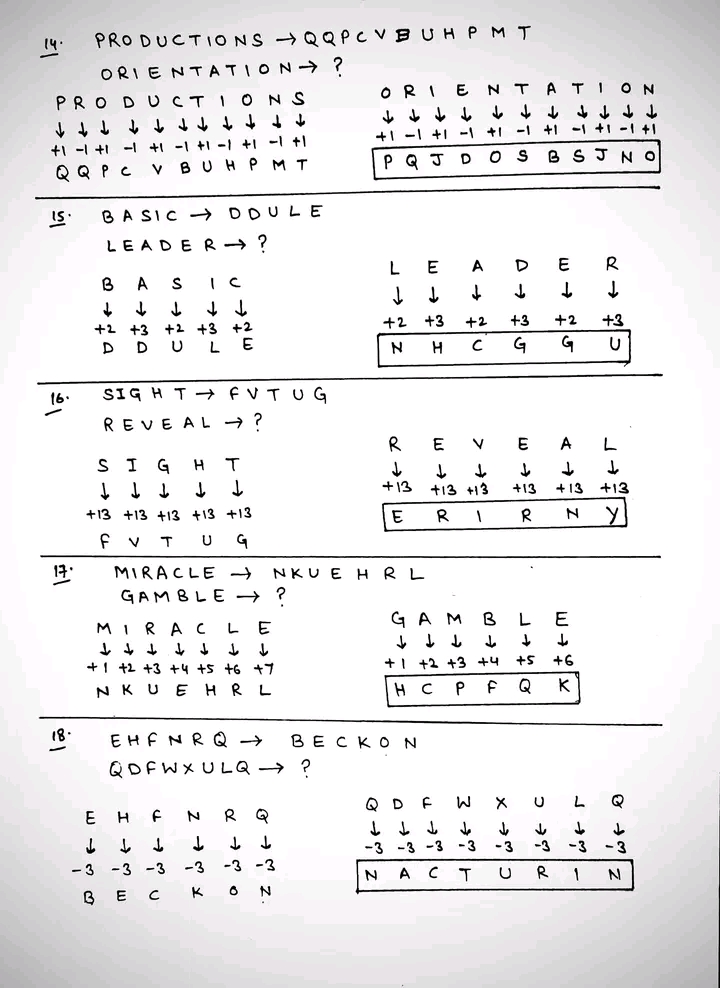 14. PRODUCTIONS → QQPCVBUHPMT
ORIENTATION → ?
P R O D U C T I O N S
↓ ↓ ↓ ↓ ↓ ↓ ↓ ↓ ↓ ↓ ↓
+1 -1 +1 -1 +1 -1 +1 -1 +1 -1 +1
Q Q P C V B U H P M T
O R I E N T A T I O N
↓ ↓ ↓ ↓ ↓ ↓ ↓ ↓ ↓ ↓ ↓
+1 -1 +1 -1 +1 -1 +1 -1 +1 -1 +1
P Q J D O S B S J N O
15. BASIC → DDULE
LEADER → ?
B A S I C
↓ ↓ ↓ ↓ ↓
+2 +3 +2 +3 +2
D D U L E
L E A D E R
↓ ↓ ↓ ↓ ↓ ↓
+2 +3 +2 +3 +2 +3
N H C G G U
16. SIGHT → FVTUG
REVEAL → ?
S I G H T
↓ ↓ ↓ ↓ ↓
+13 +13 +13 +13 +13
F V T U G
R E V E A L
↓ ↓ ↓ ↓ ↓ ↓
+13 +13 +13 +13 +13 +13
E R I R N Y
17. MIRACLE → NKUEHRL
GAMBLE → ?
M I R A C L E
↓ ↓ ↓ ↓ ↓ ↓ ↓
+1 +2 +3 +4 +5 +6 +7
N K U E H R L
G A M B L E
↓ ↓ ↓ ↓ ↓ ↓
+1 +2 +3 +4 +5 +6
H C P F Q K
18. EHFNRQ → BECKON
QDFWXULQ → ?
E H F N R Q
↓ ↓ ↓ ↓ ↓ ↓
-3 -3 -3 -3 -3 -3
B E C K O N
Q D F W X U L Q
↓ ↓ ↓ ↓ ↓ ↓ ↓ ↓
-3 -3 -3 -3 -3 -3 -3 -3
N A C T U R I N